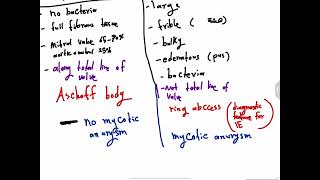 - no bacteria
- full fibrous tissue
- Mitral valve 65-70%
aortic valve 25%
- along total line of
valve
Aschoff body
- no mycotic
anurysm
- large
- frible (
- bulky
- edematous (pus)
- bacteria
- Not total line of
valve
ring abccess (diagnostic
feature for
IE)
mycotic anurysm